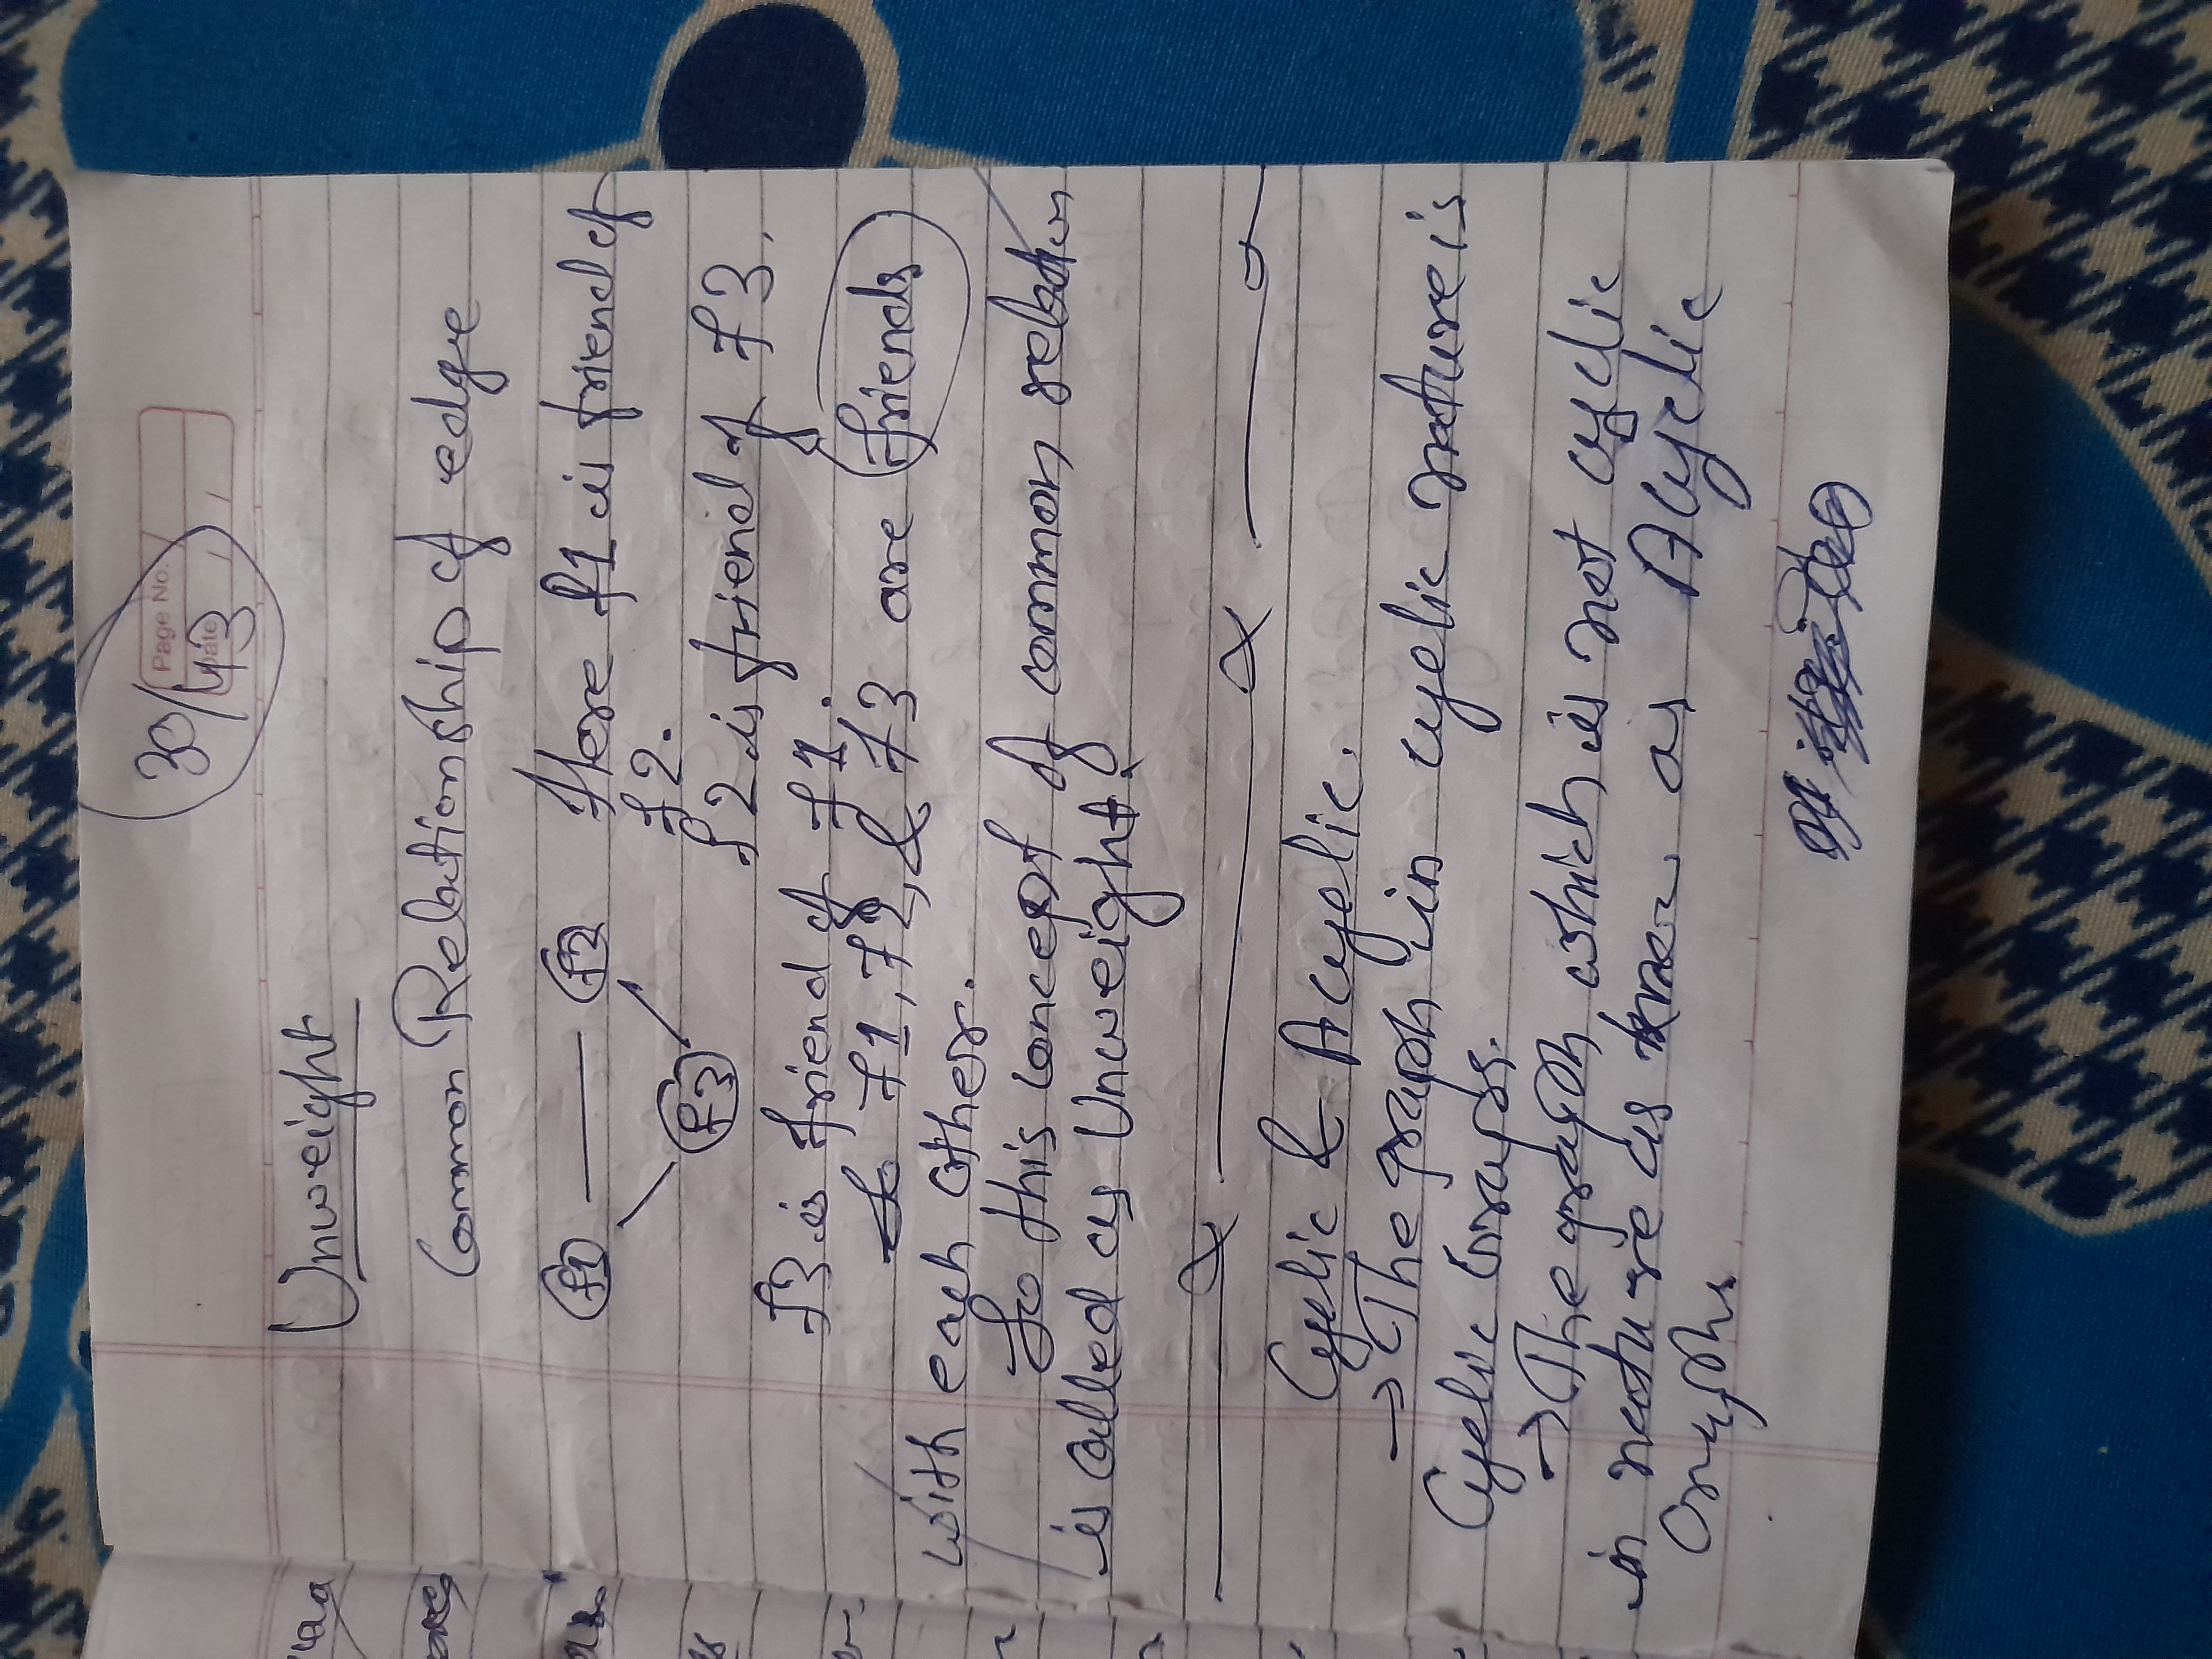 Page No.
Date / /
30/43
Unweight
Common Relationship of edge
f1 f2 Here f1 is friend of
f3 f2.
f2 is friend of f3.
f3 is friend of f1.
f1, f2, & f3 are friends
with each others.
So this concept of common relation
is called as Unweight.
Cyclic & Acyclic.
→ The graph in cyclic nature is
Cyclic Graps.
→ The graph which is not cyclic
in nature is as Acyclic